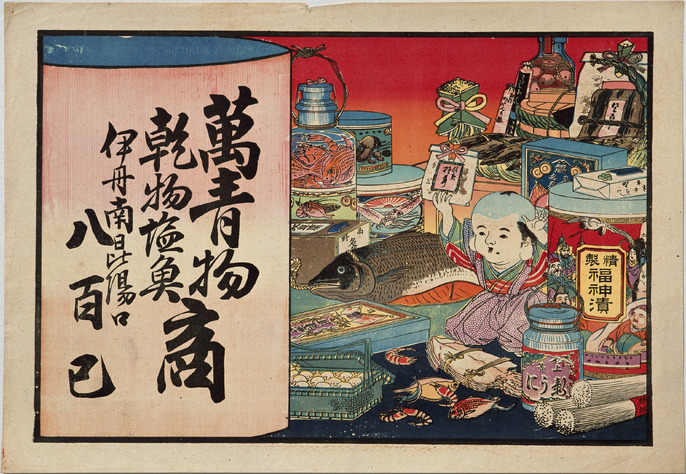 萬青物商
乾物塩魚
伊丹南昆陽口
八百巳
精製
福神漬